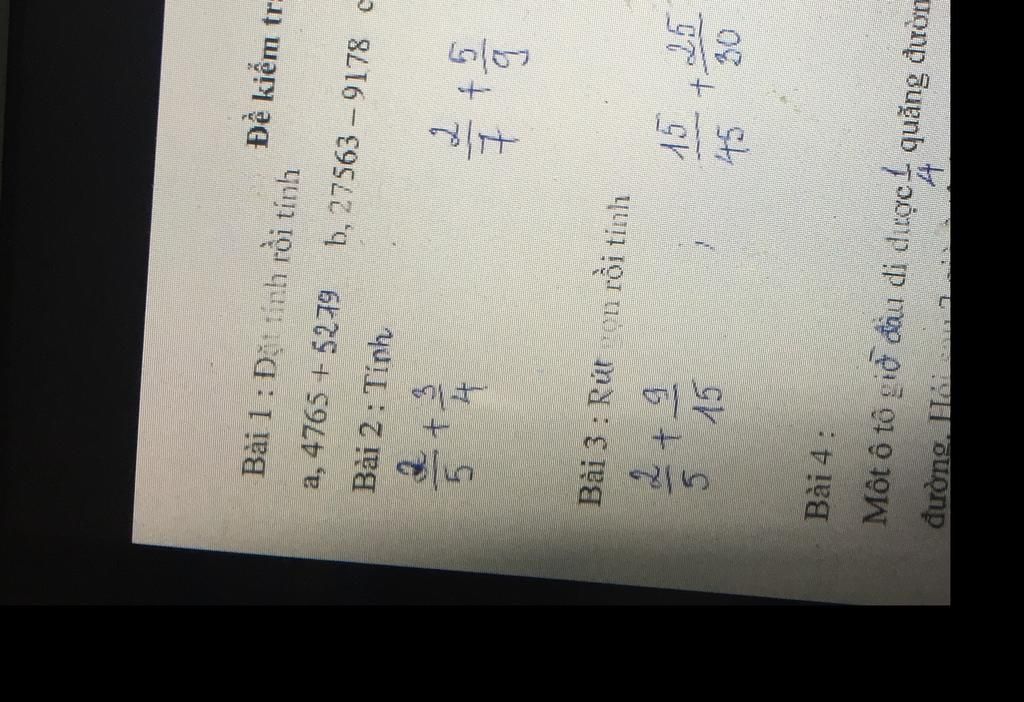 Đề kiểm
Bài 1 : Đặt tính rồi tính
a, 4765 + 5279 b, 27563 – 9178 c
Bài 2 : Tính
2/5 + 3/4 2/7 + 5/9
Bài 3 : Rút gọn rồi tính
2/5 + 9/15 , 15/45 + 25/30
Bài 4 :
Một ô tô giờ đầu di được 1/4 quãng
đường. Hỏi